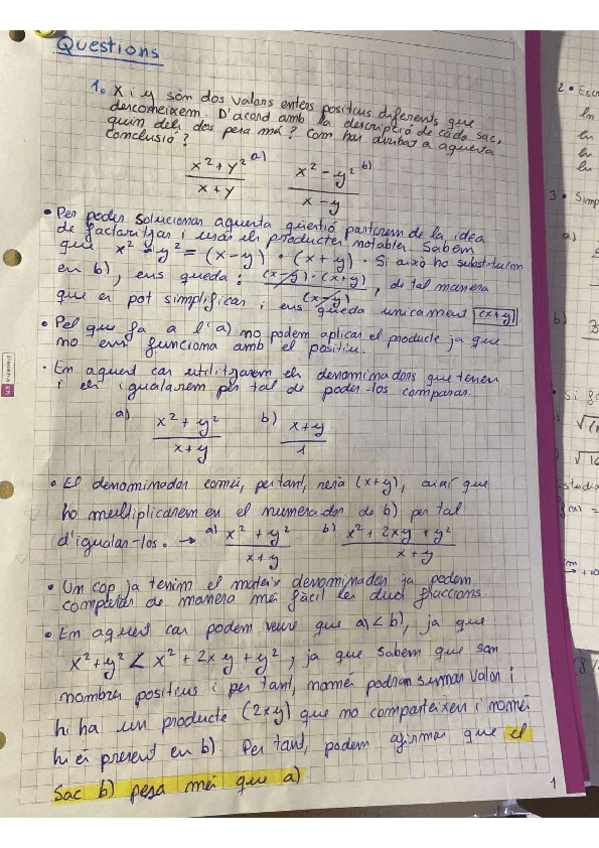 Questions
1. X i y són dos valors enters positius diferents que
desconeixem. D'acord amb la descripció de cada sac,
quin dels dos pesa més? Com has arribat a aquesta
conclusió?
x² + y² a) x² - y² b)
x + y x - y
• Per poder solucionar aquesta qüestió partirem de la idea
de factoritzar i usar els productes notables. Sabem
que x² - y² = (x-y) • (x+y). Si això ho substituïm
en b), ens queda: (x-y)·(x+y) , de tal manera
(x-y)
que es pot simplificar i ens queda unicament (x+y)
• Pel que fa a l'a) no podem aplicar el producte ja que
no ens funciona amb el positiu.
• En aquest cas utilitzarem els denominadors que tenen
i els igualarem per tal de poder-los comparar.
a) x² + y² b) x+y
x+y 1
• El denominador comú, per tant, serà (x+y), així que
ho multiplicarem en el numerador de b) per tal
d'igualar-los. → a) x² + y² b) x² + 2xy + y²
x+y x+y
• Un cop ja tenim el mateix denominador ja podem
comparar de manera més fàcil les dues fraccions
• En aquest cas podem veure que a) < b), ja que
x² + y² < x² + 2xy + y² , ja que sabem que son
nombres positius i per tant, només podran sumar valor i
hi ha un producte (2xy) que no comparteixen i només
hi és present en b). Per tant, podem afirmar que el
sac b) pesa més que a).
1
2 •
3 • Simp
a)
b)